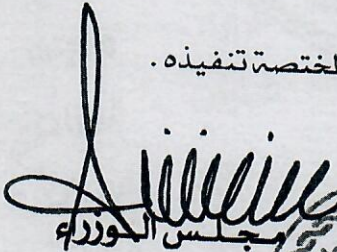 لختصة تنفيذه.
مجلس الوزراء